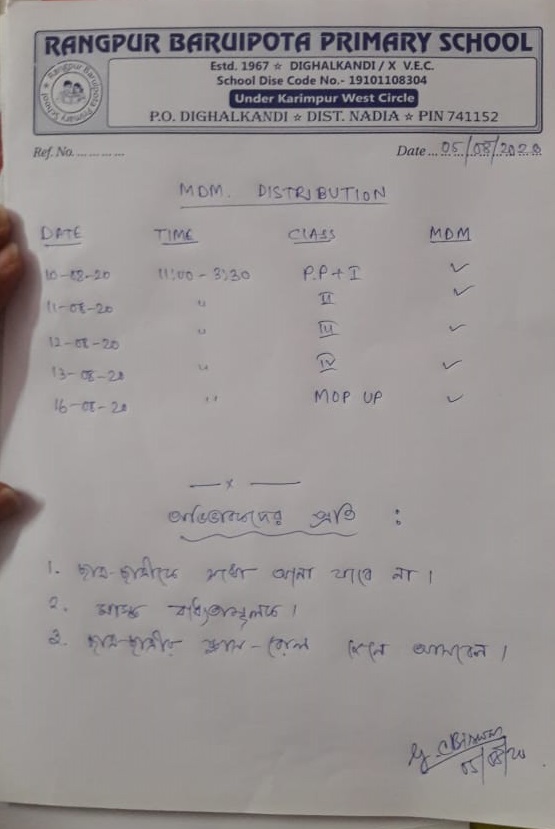 RANGPUR BARUIPOTA PRIMARY SCHOOL
Estd. 1967 ☆ DIGHALKANDI / X V.E.C.
School Dise Code No.- 19101108304
Under Karimpur West Circle
P.O. DIGHALKANDI ☆ DIST. NADIA ☆ PIN 741152
Rangpur Baruipota Primary School
Ref. No. ............ Date ... 05/08/2020
MDM. DISTRIBUTION
DATE TIME CLASS MDM
10-08-20 11:00 - 3:30 P.P + I ✓
11-08-20 " II ✓
12-08-20 " III ✓
13-08-20 " IV ✓
16-08-20 " MOP UP ✓
— x —
অভিভাবকদের প্রতি :
1. ছাত্র-ছাত্রীকে সাথে আনা যাবে না।
2. মাস্ক বাধ্যতামূলক।
3. ছাত্র-ছাত্রীর ক্লাস - রোল জেনে আসবেন।
G. C Biswas
05/08/20